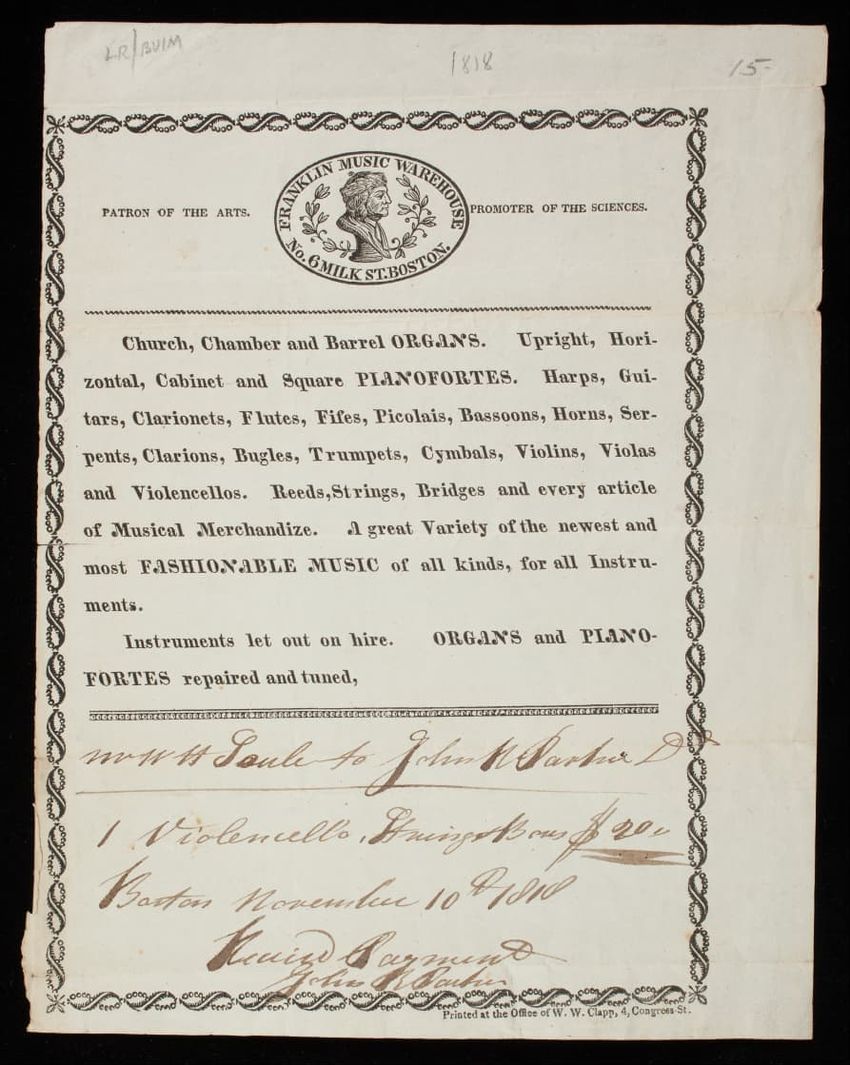 LR/BUIM
1818
15-
FRANKLIN MUSIC WAREHOUSE
No. 6 MILK ST. BOSTON.
PATRON OF THE ARTS.
PROMOTER OF THE SCIENCES.
Church, Chamber and Barrel ORGANS. Upright, Hori-
zontal, Cabinet and Square PIANOFORTES. Harps, Gui-
tars, Clarionets, Flutes, Fifes, Picolais, Bassoons, Horns, Ser-
pents, Clarions, Bugles, Trumpets, Cymbals, Violins, Violas
and Violencellos. Reeds,Strings, Bridges and every article
of Musical Merchandize. A great Variety of the newest and
most FASHIONABLE MUSIC of all kinds, for all Instru-
ments.
Instruments let out on hire. ORGANS and PIANO-
FORTES repaired and tuned,
Mr W H Soule to John R Parker Dr
1 Violencello, Strings & Bow $ 20
Boston November 10th 1818
Received Payment
John R Parker
Printed at the Office of W. W. Clapp, 4, Congress-St.